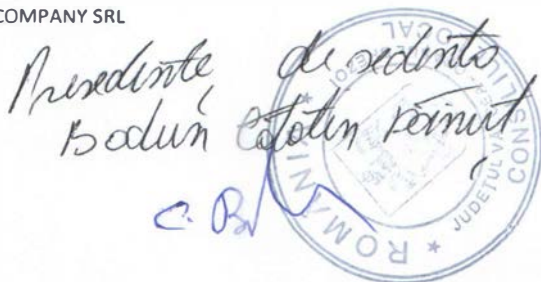 COMPANY SRL
Presedinte de sedinta
Bodun Catalin
C. B
ROMÂNIA * JUDEȚUL
CONSILIUL LOCAL